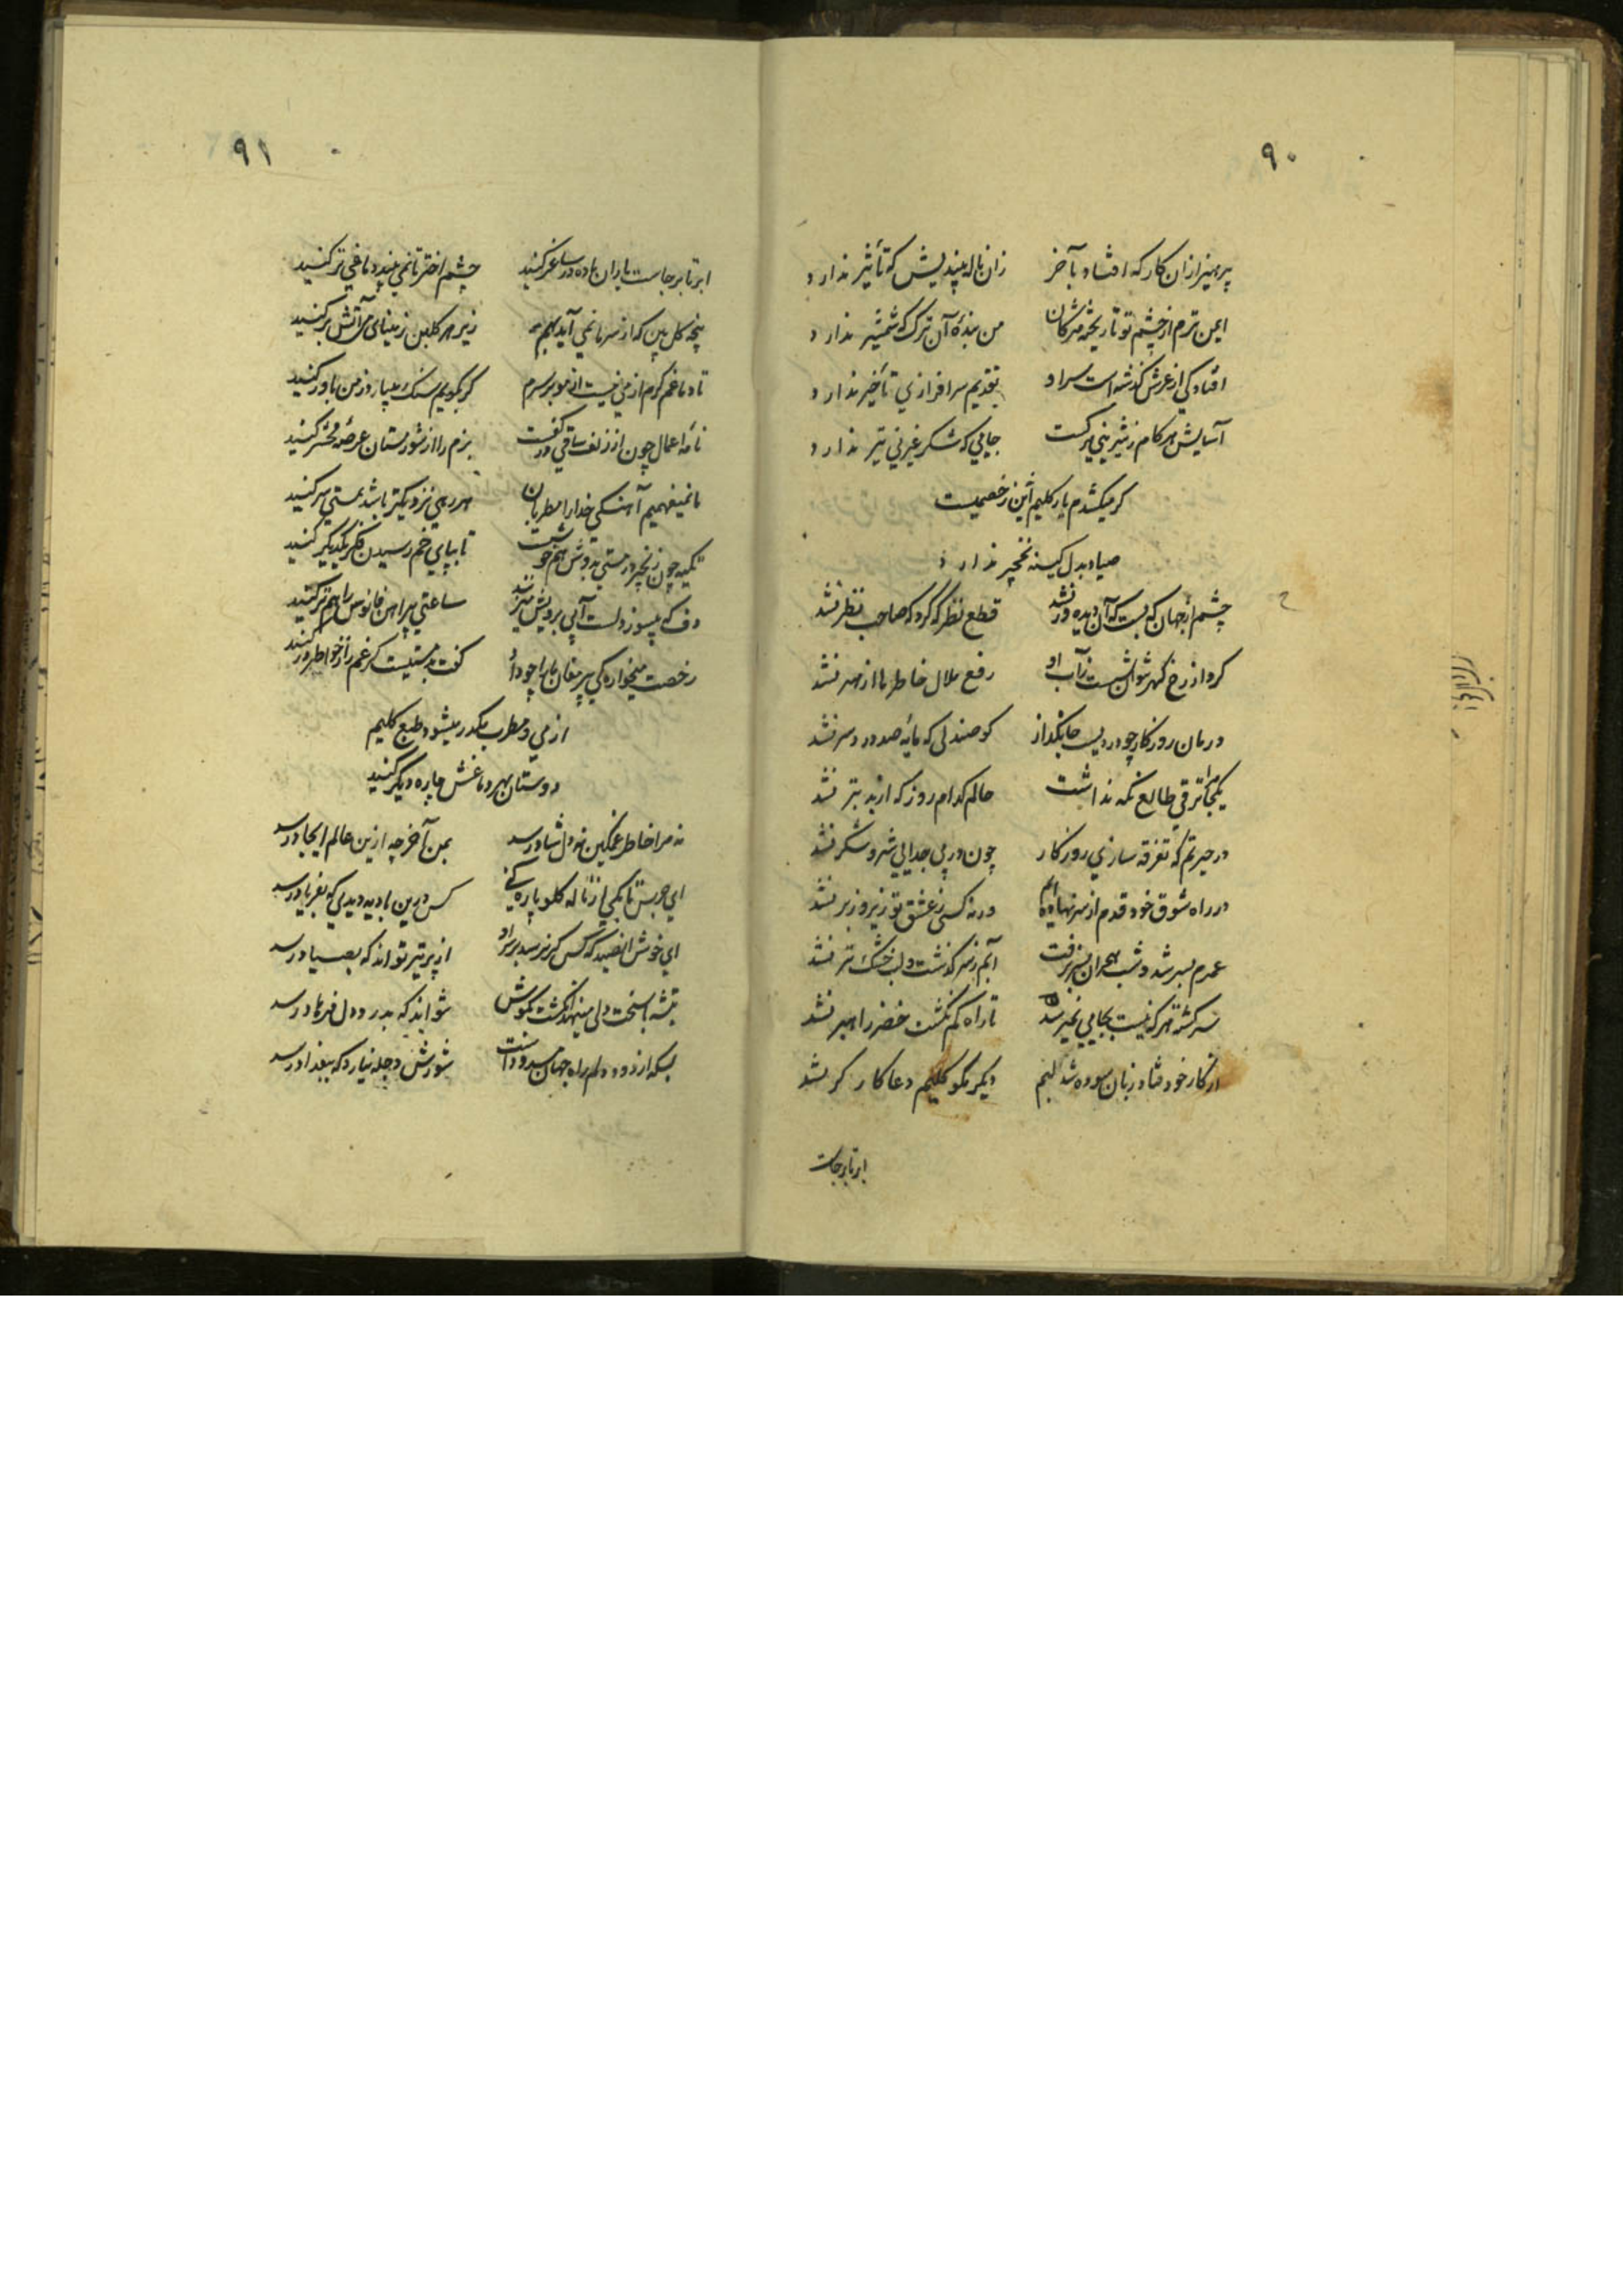 ۹۰
پرهیز ازان کار که افتاد بآخر
زان ناله بیندیش که تأثیر ندارد
ایمن ترم از چشم تو تا ریخته مژکان
من بندهٔ آن ترک که شمشیر ندارد
افتادکی از عرش کذشته است سر او
تقدیم سرافرازی تأخیر ندارد
آسایش هر کام ز شیرینی برکست
جایی که شکر غیر نی تیر ندارد
کر میکشدم یار کلیم این ز خصمیست
صیاد بدل کینه نخچیر ندارد
چشم از جهان که بست که آن دیده ور نشد
قطع نظر که کرد که صاحب نظر نشد
کرد از رخ کهر نتوان شست زآب او
رفع ملال خاطر ما از هنر نشد
درمان روزکار چو دردیست جانکداز
کو صندلی که مایه صد درد سر نشد
یکجا ترقی طالع نکه نداشت
حالم کدام روز که از بد بتر نشد
در حیرتم که تفرقه سازی روزکار
چون در پی جدایی شیر و شکر نشد
در راه شوق خود قدم از سر نهاده‌ایم
ورنه کسی ز عشق تو زیر و زبر نشد
عمرم بسر شد و شب هجران بسر نرفت
آبم ز سر کذشت و لب خشک تر نشد
سرکشته هر که نیست بجایی نمیرسد
تا راه کم نکشت خضر راهبر نشد
از کار خود فتاد زبان سوده شد لبم
دیکر مکو کلیم دعا کارکر نشد
ابر تا برجاست
۹۱
ابر تا برجاست یاران باده در ساغر کنید
چشم اختر تا نمی بیند دماغی تر کنید
پنجه کل بین که از سرما نمی آید بهم
زیر هر کلبن ز مینای می آتش بر کنید
تا دماغم کرم از می نیست از مو بر سرم
کر بکویم سنک میبارد ز من باور کنید
نامه اعمال چون از زلف ساقی در کفست
بزم را از شور مستان عرصه محشر کنید
ما نمیفهمیم آهنکی خدا را مطربان
هر رهی نزدیکتر باشد بمستی سر کنید
تکیه چون زنجیر در مستی بدوش هم خوشست
تا بپای خم رسیدن فکر یکدیکر کنید
دف که میسوزد دلست آبی برویش میزنند
ساعتی پیراهن فانوس را هم تر کنید
رخصت میخوارکی پیر مغان ما را چو داد
کفت بدمستیست کر غم را ز خواطر در کنید
از می و مطرب مکدر میشود طبع کلیم
دوستان بهر دماغش چاره دیکر کنید
نه مرا خاطر غمکین نه دل شاد رسد
بمن آخر چه ازین عالم ایجاد رسد
ای جرس تا بکی از ناله کلو پاره کنی
کس درین بادیه دیدی که بفریاد رسد
ای خوش آن صید که کس کر نرسد بر سر او
از پر تیر تواند که بصیاد رسد
تیشه با سخت دلی مینهد انکشت بکوش
نتواند که بدرد دل فرهاد رسد
بسکه از دود دلم راه جهان مسدود است
شورش دجله نیارد که ببغداد رسد